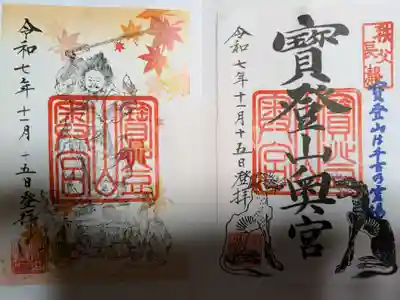 令和七年十一月十五日登拝
寶登山
奥宮
秩父
長瀞
寶登山は千古の霊場
寶登山奥宮
寶登山
奥宮
令和七年十一月十五日登拝